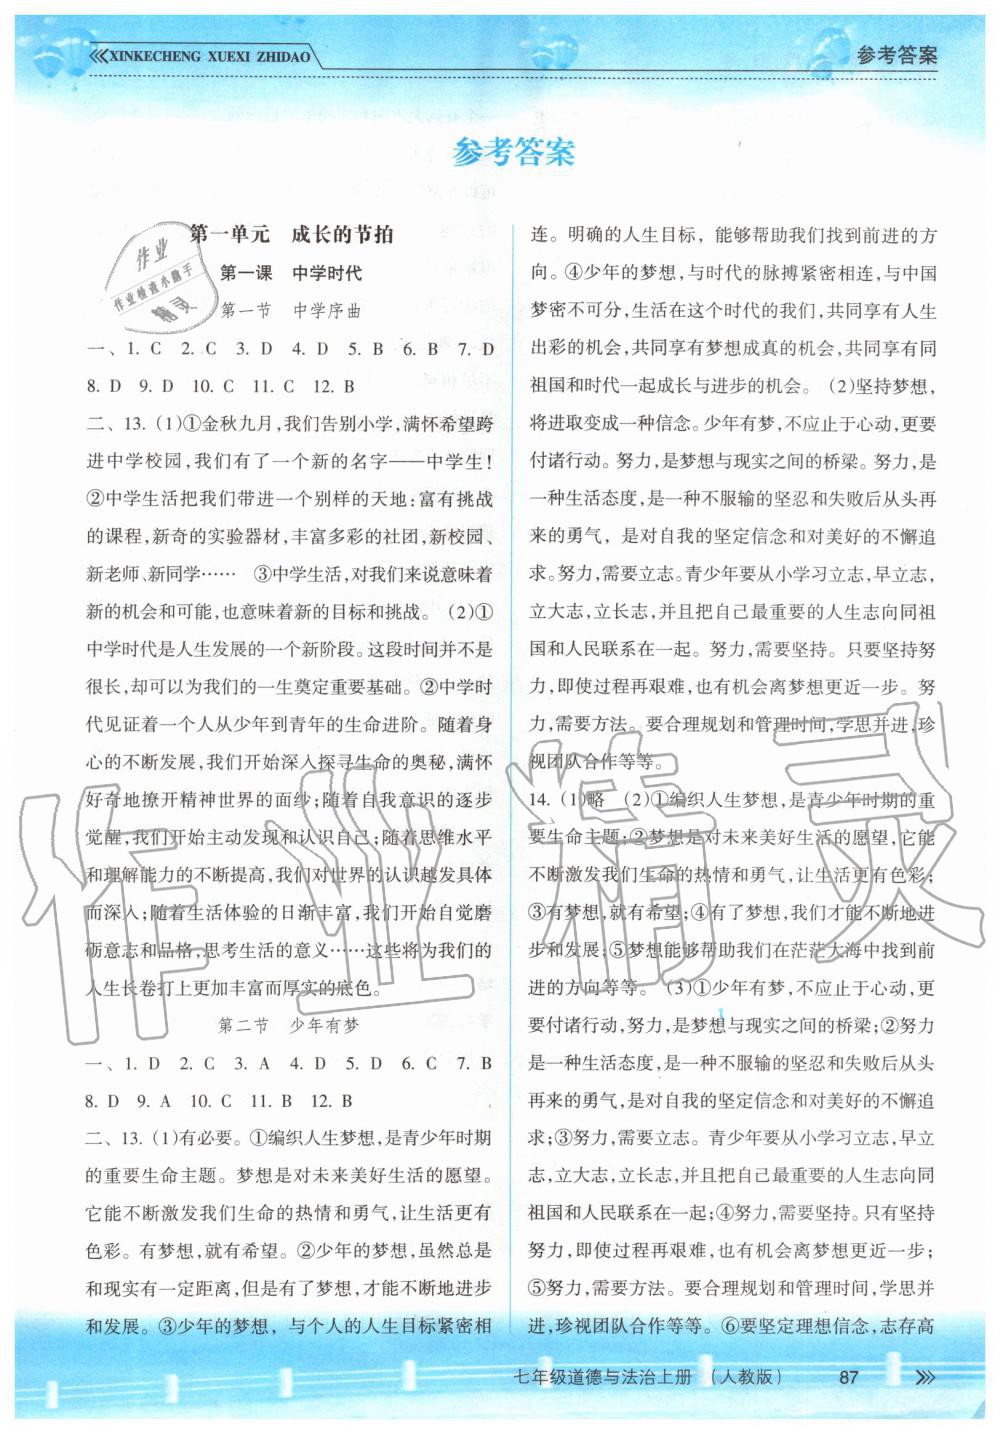 XINKECHENG XUEXI ZHIDAO
参考答案
参考答案
第一单元 成长的节拍
第一课 中学时代
第一节 中学序曲
一、1. C 2. C 3. D 4. D 5. B 6. B 7. D
8. D 9. D 10. C 11. C 12. B
二、13. (1)①金秋九月,我们告别小学,满怀希望跨
进中学校园,我们有了一个新的名字——中学生!
②中学生活把我们带进一个别样的天地:富有挑战
的课程,新奇的实验器材,丰富多彩的社团,新校园、
新老师、新同学…… ③中学生活,对我们来说意味着
新的机会和可能,也意味着新的目标和挑战。 (2)①
中学时代是人生发展的一个新阶段。这段时间并不是
很长,却可以为我们的一生奠定重要基础。②中学时
代见证着一个人从少年到青年的生命进阶。随着身
心的不断发展,我们开始深入探寻生命的奥秘,满怀
好奇地撩开精神世界的面纱;随着自我意识的逐步
觉醒,我们开始主动发现和认识自己;随着思维水平
和理解能力的不断提高,我们对世界的认识越发具体
而深入;随着生活体验的日渐丰富,我们开始自觉磨
砺意志和品格,思考生活的意义……这些将为我们的
人生长卷打上更加丰富而厚实的底色。
第二节 少年有梦
一、1. D 2. C 3. A 4. D 5. D 6. C 7. B
8. D 9. A 10. C 11. B 12. B
二、13. (1)有必要。①编织人生梦想,是青少年时期
的重要生命主题。梦想是对未来美好生活的愿望。
它能不断激发我们生命的热情和勇气,让生活更有
色彩。有梦想,就有希望。②少年的梦想,虽然总是
和现实有一定距离,但是有了梦想,才能不断地进步
和发展。③少年的梦想,与个人的人生目标紧密相
连。明确的人生目标,能够帮助我们找到前进的方
向。④少年的梦想,与时代的脉搏紧密相连,与中国
梦密不可分,生活在这个时代的我们,共同享有人生
出彩的机会,共同享有梦想成真的机会,共同享有同
祖国和时代一起成长与进步的机会。 (2)坚持梦想,
将进取变成一种信念。少年有梦,不应止于心动,更要
付诸行动。努力,是梦想与现实之间的桥梁。努力,是
一种生活态度,是一种不服输的坚忍和失败后从头再
来的勇气,是对自我的坚定信念和对美好的不懈追
求。努力,需要立志。青少年要从小学习立志,早立志,
立大志,立长志,并且把自己最重要的人生志向同祖
国和人民联系在一起。努力,需要坚持。只要坚持努
力,即使过程再艰难,也有机会离梦想更近一步。努
力,需要方法。要合理规划和管理时间,学思并进,珍
视团队合作等等。
14. (1)略 (2)①编织人生梦想,是青少年时期的重
要生命主题;②梦想是对未来美好生活的愿望,它能
不断激发我们生命的热情和勇气,让生活更有色彩;
③有梦想,就有希望;④有了梦想,我们才能不断地进
步和发展;⑤梦想能够帮助我们在茫茫大海中找到前
进的方向等等。 (3)①少年有梦,不应止于心动,更
要付诸行动,努力,是梦想与现实之间的桥梁;②努力
是一种生活态度,是一种不服输的坚忍和失败后从头
再来的勇气,是对自我的坚定信念和对美好的不懈追
求;③努力,需要立志。青少年要从小学习立志,早立
志,立大志,立长志,并且把自己最重要的人生志向同
祖国和人民联系在一起;④努力,需要坚持。只有坚持
努力,即使过程再艰难,也有机会离梦想更近一步;
⑤努力,需要方法。要合理规划和管理时间,学思并
进,珍视团队合作等等。⑥要坚定理想信念,志存高
七年级道德与法治上册 (人教版) 87
作业
作业检查小助手
精灵
作业精灵